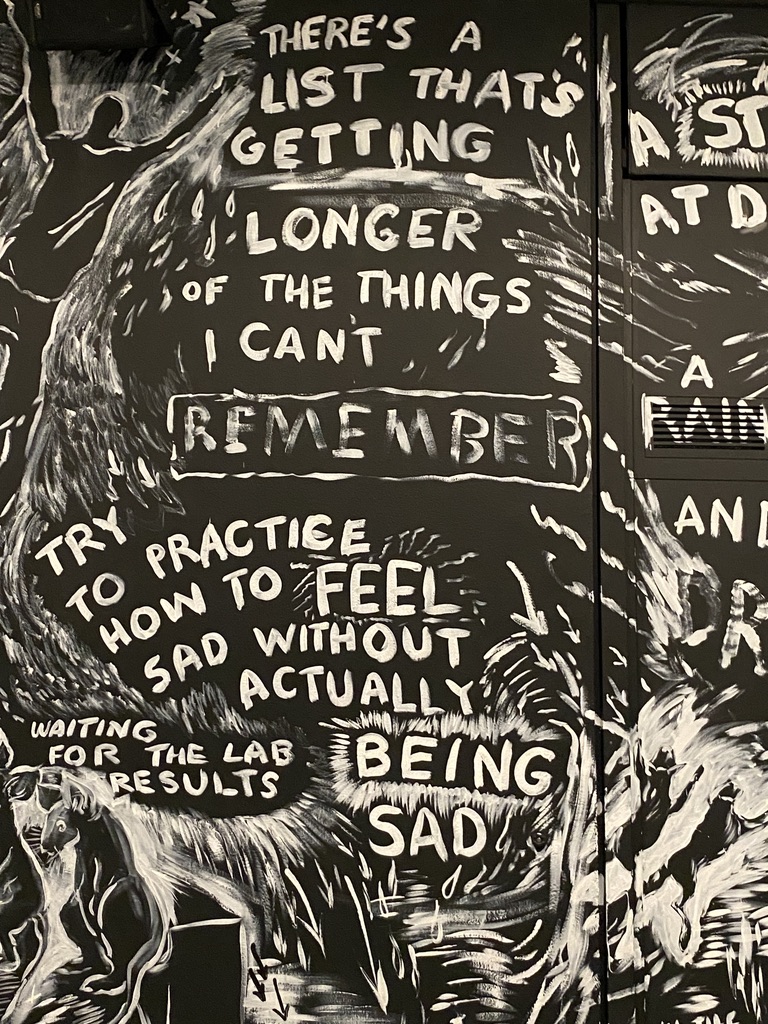 THERE'S A
LIST THAT'S
GETTING
LONGER
OF THE THINGS
I CAN'T
REMEMBER
TRY
TO PRACTICE
HOW TO FEEL
SAD WITHOUT
ACTUALLY
BEING
SAD
WAITING
FOR THE LAB
RESULTS
A
AT
A
RAIN